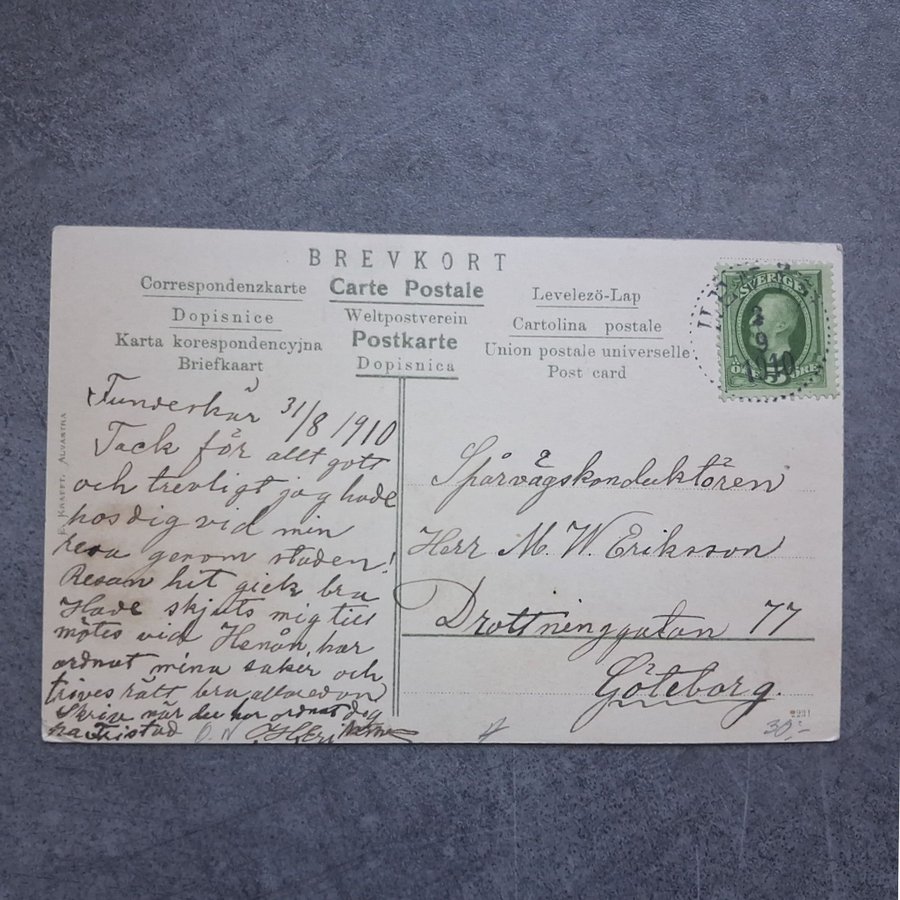 BREVKORT
Correspondenzkarte
Carte Postale
Levelező-Lap
Dopisnice
Weltpostverein
Cartolina postale
Karta korespondencyjna
Postkarte
Union postale universelle
Briefkaart
Dopisnica
Post card
SVERIGE
5
ÖRE
2
9
1910
E. KRAFFT, ALVASTRA
31/8 1910
Tack för allt gott
och trevligt jag hade
hos dig vid min
resa genom staden!
Resan hit gick bra
Hade skjuts mig till
mötes vid Henån, har
ordnat mina saker och
trives rätt bra allaredan
Skriv när du har ordnat dig
Spårvägskonduktören
Herr M. W. Eriksson
Drottninggatan 77
Göteborg.
30:-